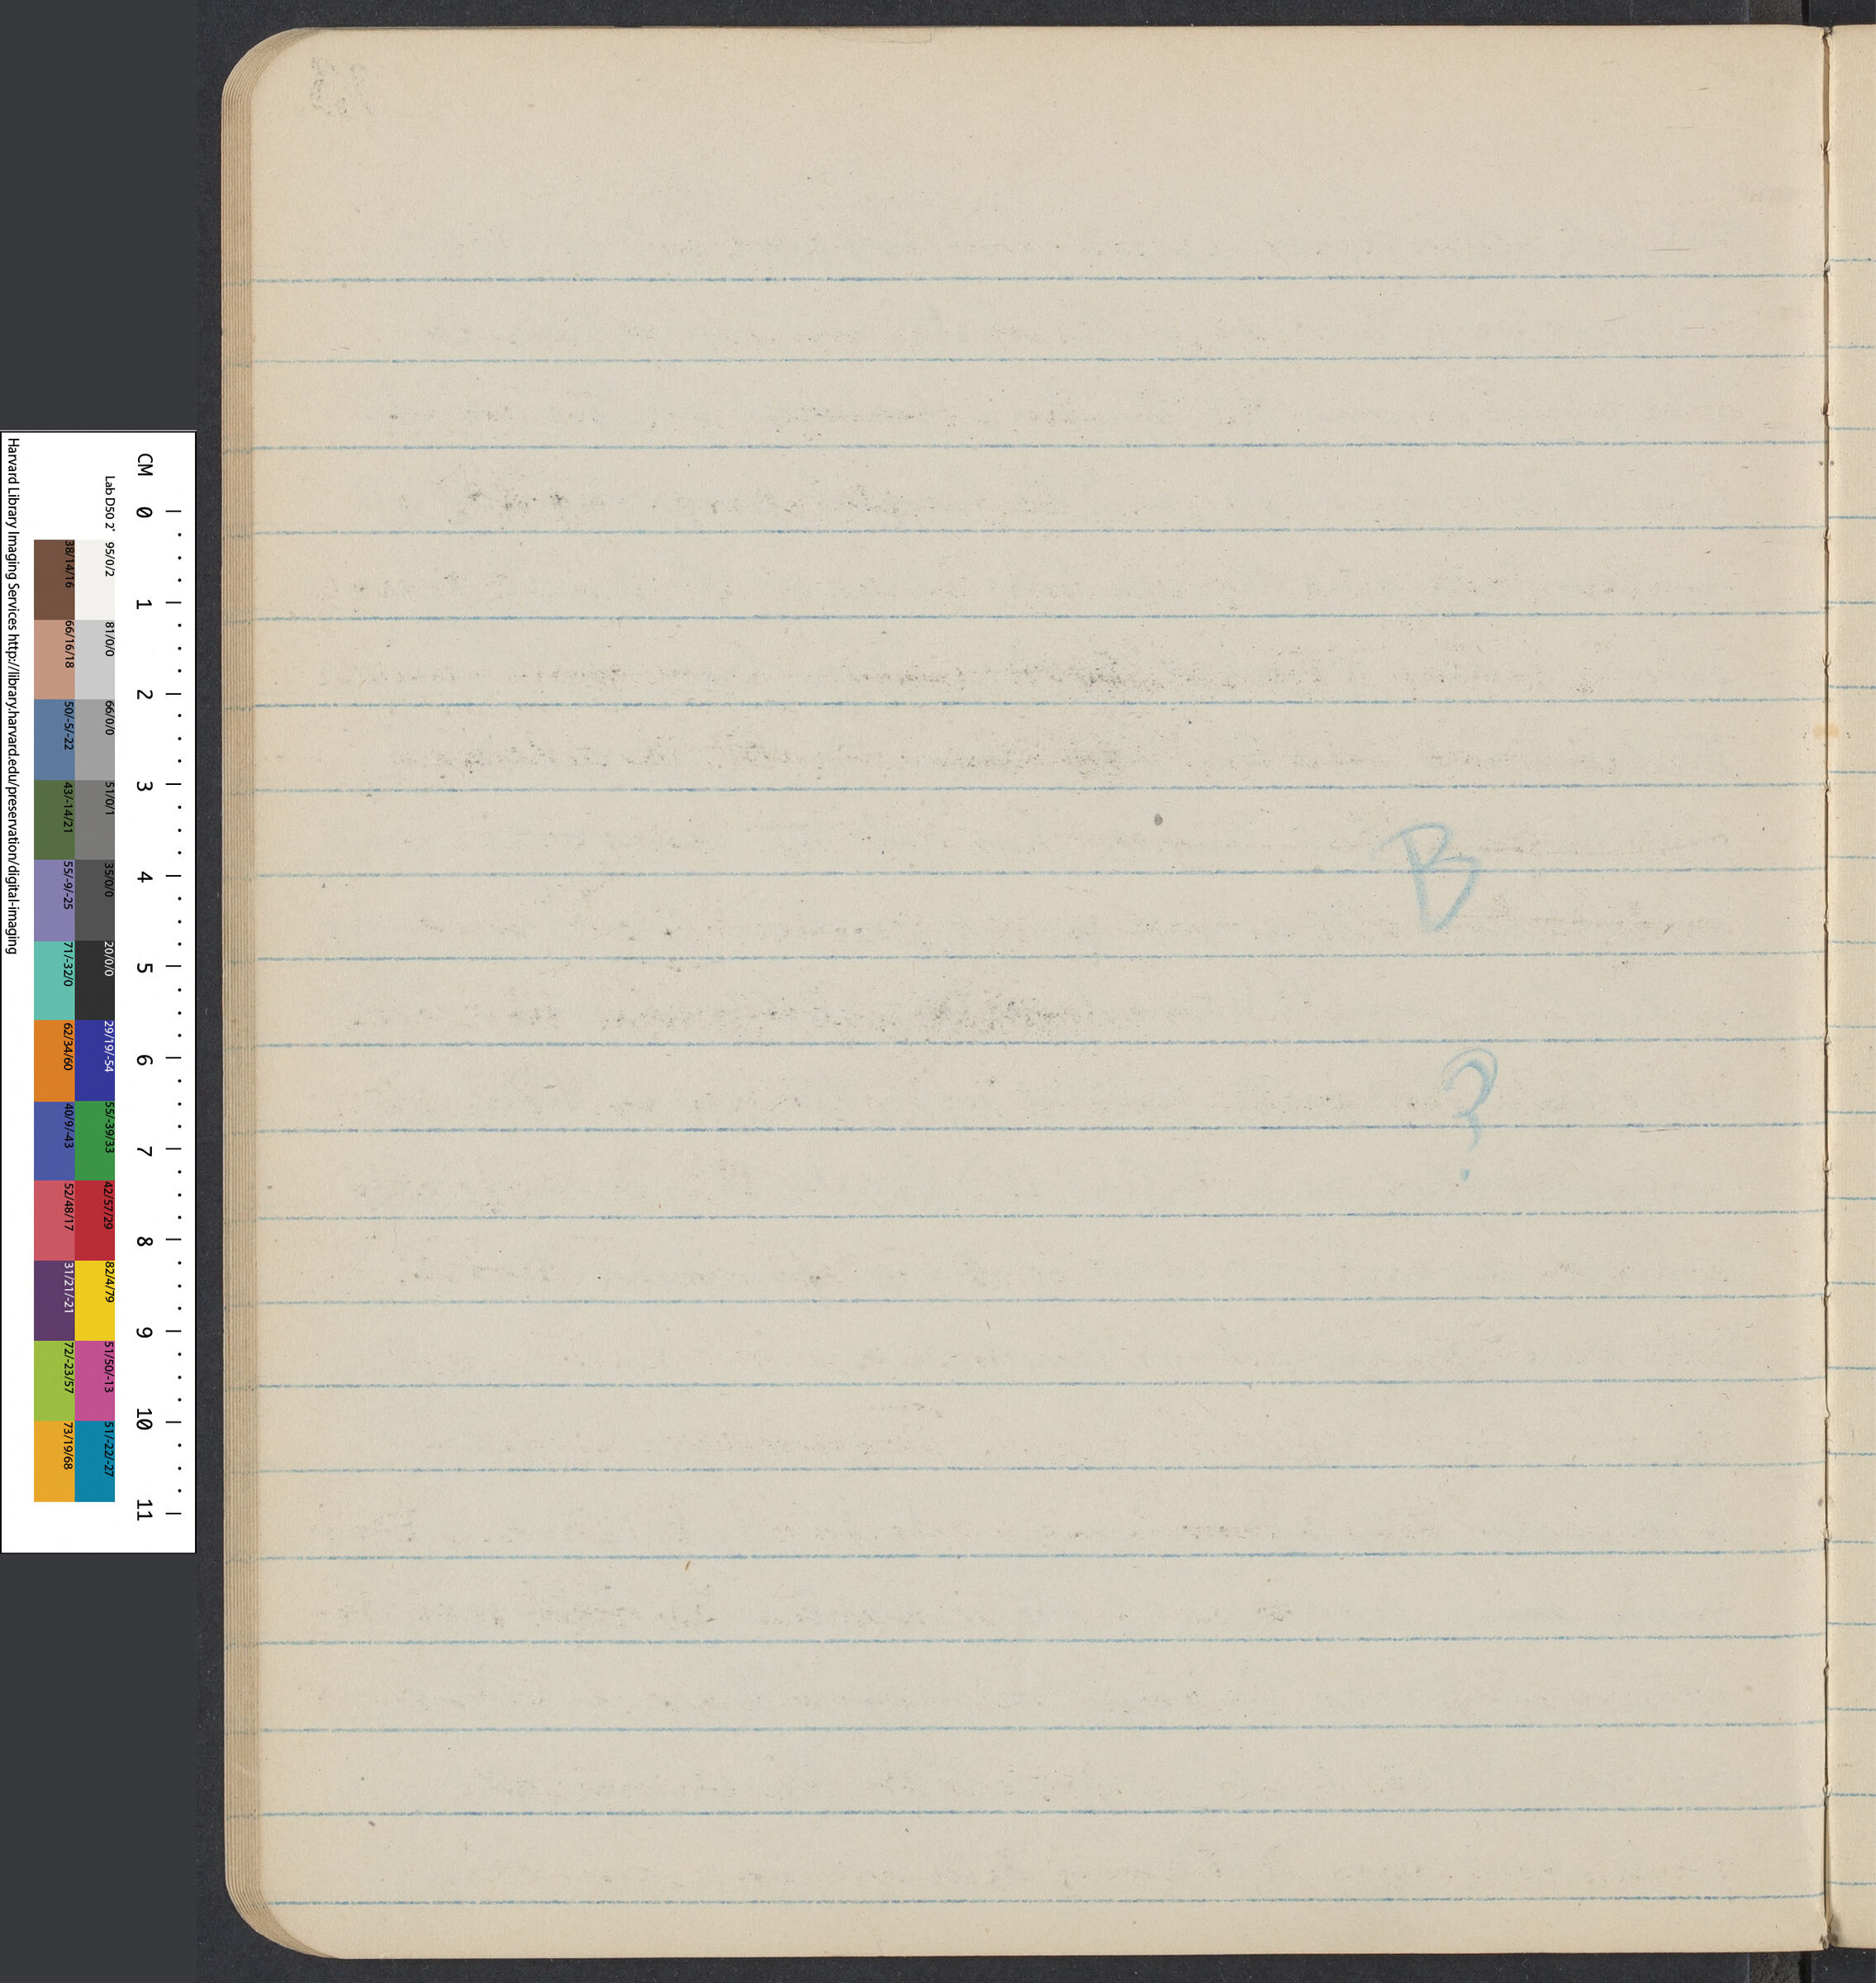 B
?
CM 0 1 2 3 4 5 6 7 8 9 10 11
Lab D50 2° 95/0/2 81/0/0 66/0/0 51/0/1 35/0/0 20/0/0 29/19/-54 55/-39/33 42/57/29 82/4/79 51/50/-13 51/-22/-27
38/14/16 66/16/18 50/-5/-22 43/-14/21 55/-9/-25 71/-32/0 62/34/60 40/9/-43 52/48/17 31/21/-21 72/-23/57 73/19/68
Harvard Library Imaging Services http://library.harvard.edu/preservation/digital-imaging